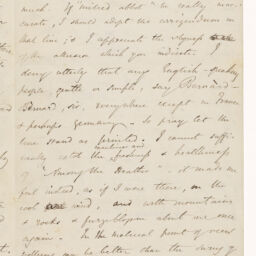 much. If "mitred abbot" be really inac-
curate, I should adopt the corrigendum in
that line; & I appreciate the vagueness
of the allusion which you indicate. I
deny utterly that any English-speaking
people, gentle or simple, say Bernard-
Bernard, sir, everywhere except in France
& perhaps Germany. So pray let the
line stand as printed. I cannot suffi-
ciently extol the sweetness and freshness & healthiness
of "Among the Heather". It made me
feel indeed, as if I were there, in the
cool wind, and with mountains
& rocks & gorze blossom about me once
again. In the material point of view
nothing can be better than the